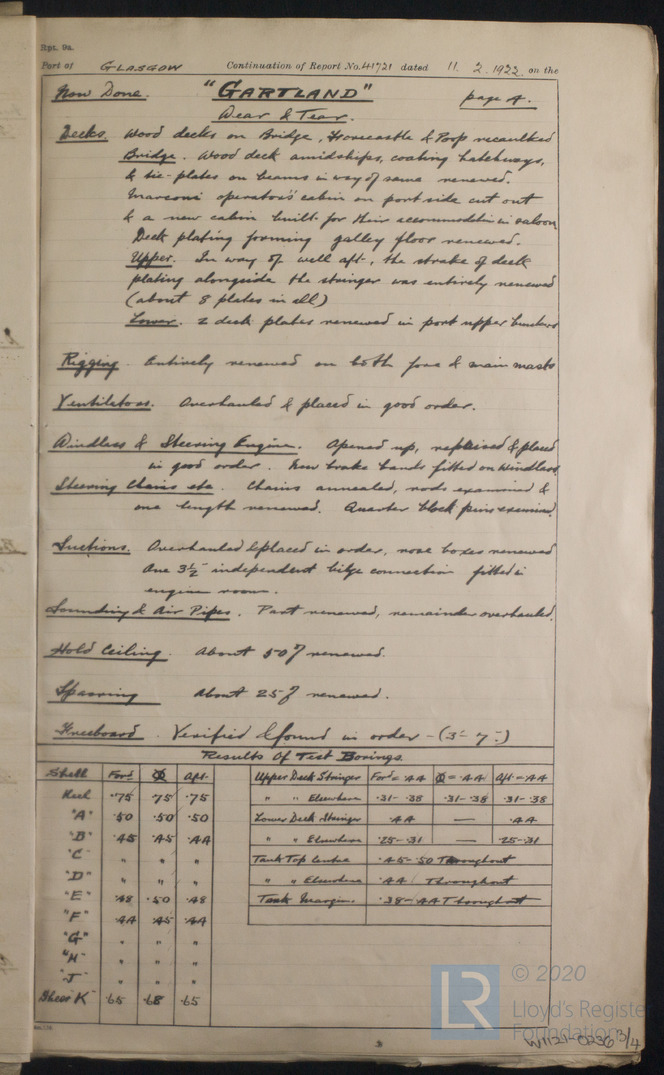 Rpt. 9a.
Port of GLASGOW Continuation of Report No. 41721 dated 11. 2. 1922. on the
Now Done. "GARTLAND" page 4.
Wear & Tear.
Decks. Wood decks on Bridge, Forecastle & Poop recaulked
Bridge. Wood deck amidships, coaling hatchways,
& tie-plates on beams in way of same renewed.
Marconi operators' cabin on port side cut out
& a new cabin built for their accommodation in saloon
Deck plating forming galley floor renewed.
Upper. In way of well aft, the strake of deck
plating alongside the stringer was entirely renewed
(about 8 plates in all)
Lower. 2 deck plates renewed in port upper bunkers
Rigging. Entirely renewed on both fore & main masts
Ventilators. Overhauled & placed in good order.
Windlass & Steering Engine. Opened up, replaced & placed
in good order. New brake bands fitted on Windlass
Steering Chains etc. Chains annealed, rods examined &
one length renewed. Quarter block pins examined.
Suctions. Overhauled & placed in order, rose boxes renewed
One 3½" independent bilge connection fitted in
engine room.
Sounding & Air Pipes. Part renewed, remainder overhauled.
Hold Ceiling. About 50% renewed.
Sparring About 25% renewed.
Freeboard. Verified & found in order - (3'- 7")
Results Of Test Borings.
Shell Ford. Aft. Upper Deck Stringer Ford = .44 = .44 Aft = .44
Keel .75 .75 .75 " " Elsewhere .31-.38 .31-.38 .31-.38
"A" .50 .50 .50 Lower Deck Stringer .44 — .44
"B" .45 .45 .44 " " Elsewhere .25-.31 — .25-.31
"C" " " " Tank Top Centre .45-.50 Throughout
"D" " " " " " Elsewhere .44 Throughout
"E" .48 .50 .48 Tank Margin .38-.44 Throughout
"F" .44 .45 .44
"G" " " "
"H" " " "
"J" " " "
Sheer "K" .65 .68 .65
LR © 2020
Lloyd's Register
Foundation
W1121-0236 3/4